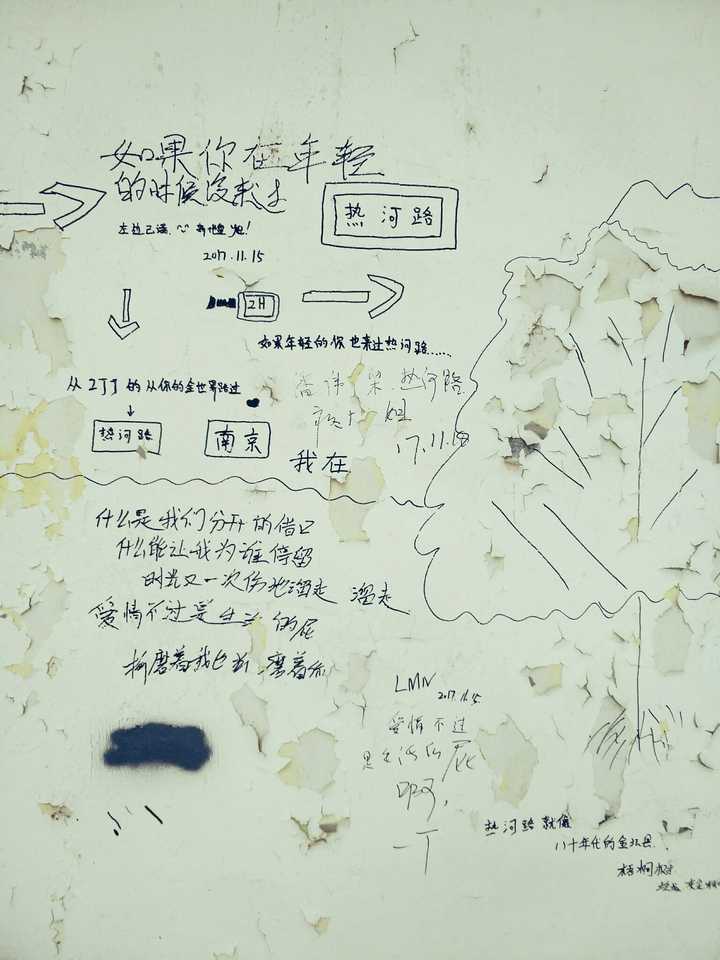 如果你在年轻
的时候没来过
热河路
2017.11.15
2H
如果年轻的你也来过热河路......
从2丁丁的从你的全世界路过
热河路
南京
热河路
我在
17.11.18
什么是我们分开的借口
什么能让我为谁停留
时光又一次伤
溜走 溜走
爱情不过是生活的屁
折磨着我也折磨着你
LMN
2017.11.15
爱情不过
是生活的屁
啊，
一丁
热河路就像
八十年代的金坛县
梧桐树